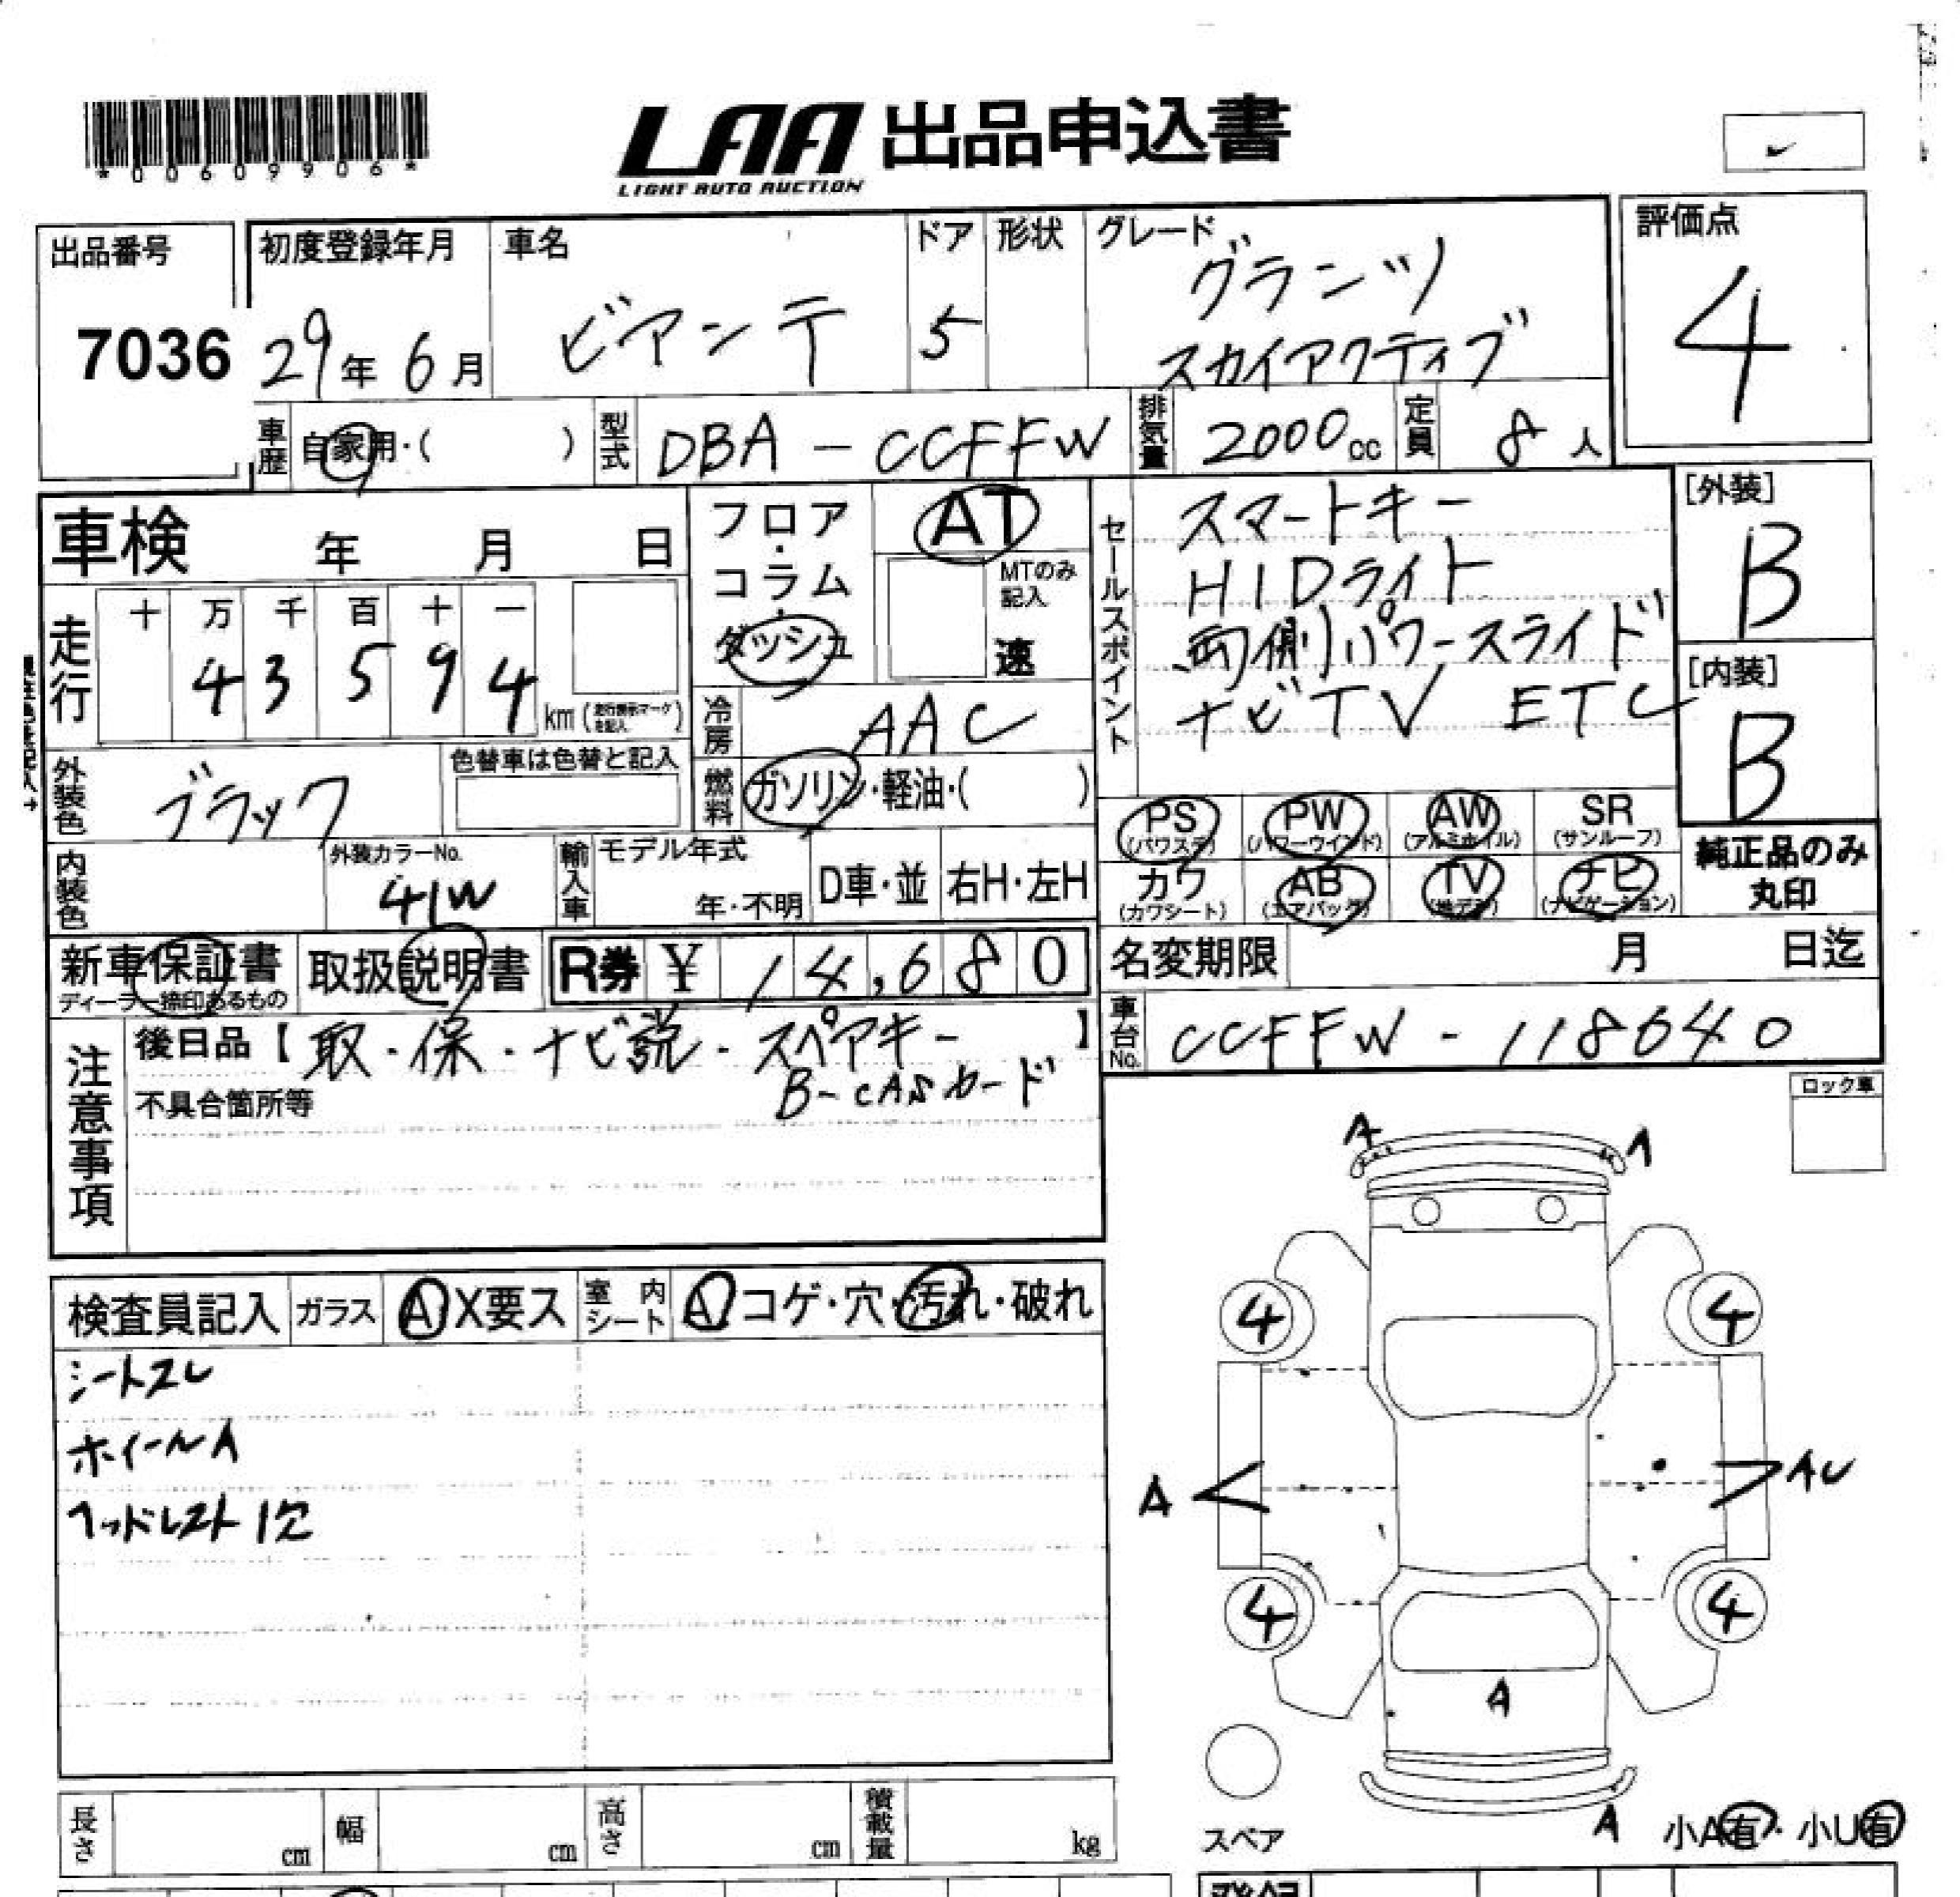 *00609906*
LAA 出品申込書
LIGHT AUTO AUCTION
出品番号
7036
初度登録年月
29年 6月
車名
ビアンテ
ドア
5
形状
グレード
グランツ
スカイアクティブ
評価点
4
車歴 自家用・( )
型式 DBA-CCFFW
排気量 2000cc
定員 8人
車検 年 月 日
フロア・コラム・ダッシュ
AT
MTのみ記入
速
セールスポイント
スマートキー
HIDライト
両側パワースライド
ナビTV ETC
[外装]
B
[内装]
B
走行 十 万 千 百 十 一
4 3 5 9 4 km
冷房 AAC
外装色 ブラック
色替車は色替と記入
燃料 ガソリン・軽油・( )
PS (パワステ) PW (パワーウインド) AW (アルミホイル) SR (サンルーフ)
カワ (カワシート) AB (エアバッグ) TV (地デジ) ナビ (ナビゲーション)
純正品のみ丸印
内装色
外装カラーNo.
41W
輸入車 モデル年式
年・不明 D車・並 右H・左H
新車保証書
ディーラー締印あるもの
取扱説明書
R券 ¥ 14,680
名変期限 月 日迄
車台No. CCFFW-118640
注意事項
後日品【取・保・ナビ説・スペアキー】
B-CASカード
不具合箇所等
ロック車
検査員記入 ガラス A X要ス 室内シート A コゲ・穴・汚れ・破れ
シートスレ
ホイールA
ヘッドレスト1欠
A A
4 4
A AU
4 4
A
スペア
A
小A有・小U有
長さ cm 幅 cm 高さ cm 積載量 kg